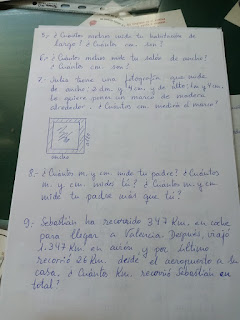 5.- ¿Cuántos metros mide tu habitación de
largo? ¿Cuántos cm. son?
6.- ¿Cuántos metros mide tu salón de ancho?
¿Cuántos cm. son?
7.- Julia tiene una fotografía que mide
de ancho, 2 dm. y 4 cm. y de alto: 1 y cm.
Le quiere poner un marco de madera
alrededor. ¿Cuántos cm. medirá el marco?
ancho
alto
8.- ¿Cuántos m. y cm. mide tu padre? ¿Cuántos
m. y cm. mides tú? ¿Cuántos m. y cm.
mide tu padre más que tú?
9.- Sebastián ha recorrido 347 Km. en coche
para llegar a Valencia. Después, viajó
1.347 Km. en avión y por último
recorrió 26 Km. desde el aeropuerto a tu
casa. ¿Cuántos Km. recorrió Sebastián en
total?